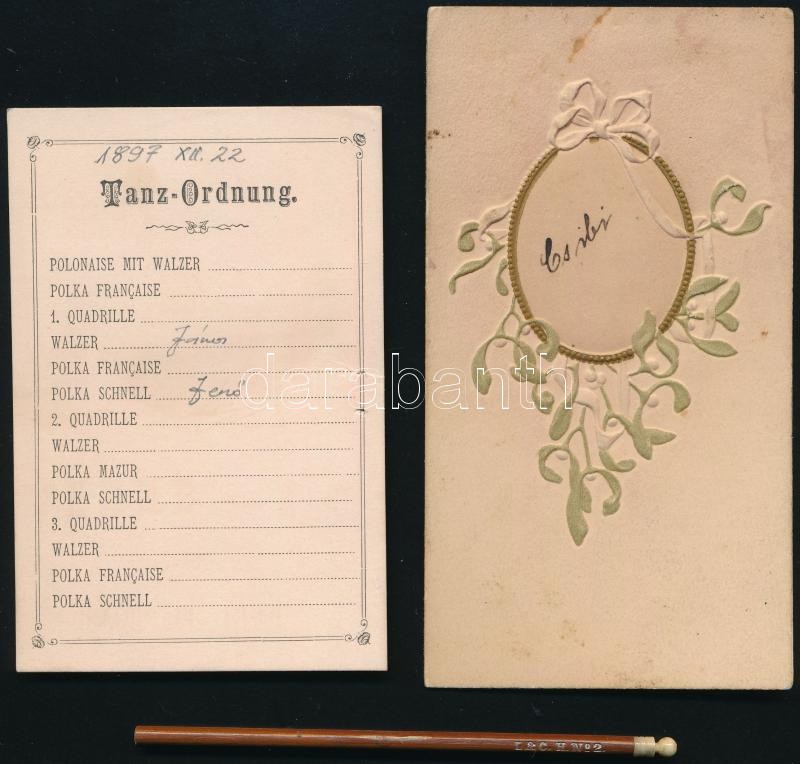 1897 XII. 22
Tanz-Ordnung.
POLONAISE MIT WALZER
POLKA FRANÇAISE
1. QUADRILLE
WALZER János
POLKA FRANÇAISE
POLKA SCHNELL Jenő
2. QUADRILLE
WALZER
POLKA MAZUR
POLKA SCHNELL
3. QUADRILLE
WALZER
POLKA FRANÇAISE
POLKA SCHNELL
Csibi
darabanth
L & C. H. No 2.